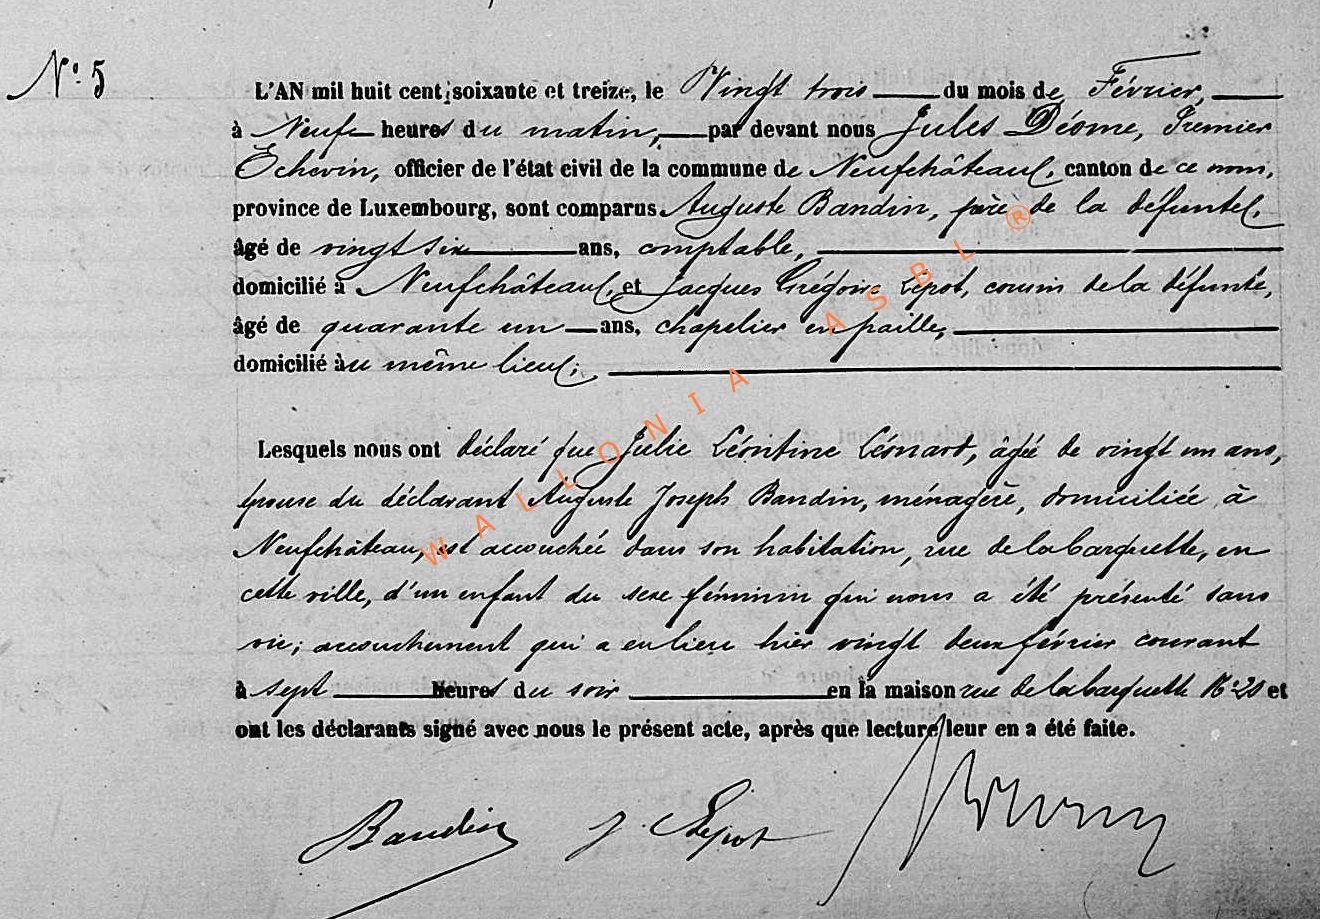 N° 5
L'AN mil huit cent soixante et treize, le Vingt trois du mois de Février,
à Neuf heures du matin, par devant nous Jules Déome, Premier
Echevin, officier de l'état civil de la commune de Neufchâteau, canton de ce nom,
province de Luxembourg, sont comparus Auguste Baudin, père de la défunte,
âgé de vingt six ans, comptable,
domicilié à Neufchâteau, et Jacques Grégoire Lépot, cousin de la défunte,
âgé de quarante un ans, chapelier en paille,
domicilié au même lieu;
Lesquels nous ont déclaré que Julie Léontine Léonard, âgée de vingt un ans,
épouse du déclarant Auguste Joseph Baudin, ménagère, domiciliée à
Neufchâteau, est accouchée dans son habitation, rue de la barquette, en
cette ville, d'un enfant du sexe féminin qui nous a été présenté sans
vie; accouchement qui a eu lieu hier vingt deux février courant
à sept heures du soir en la maison rue de la barquette N° 20 et
ont les déclarants signé avec nous le présent acte, après que lecture leur en a été faite.
Baudin J. Lépot
WALLONIA ASBL ®